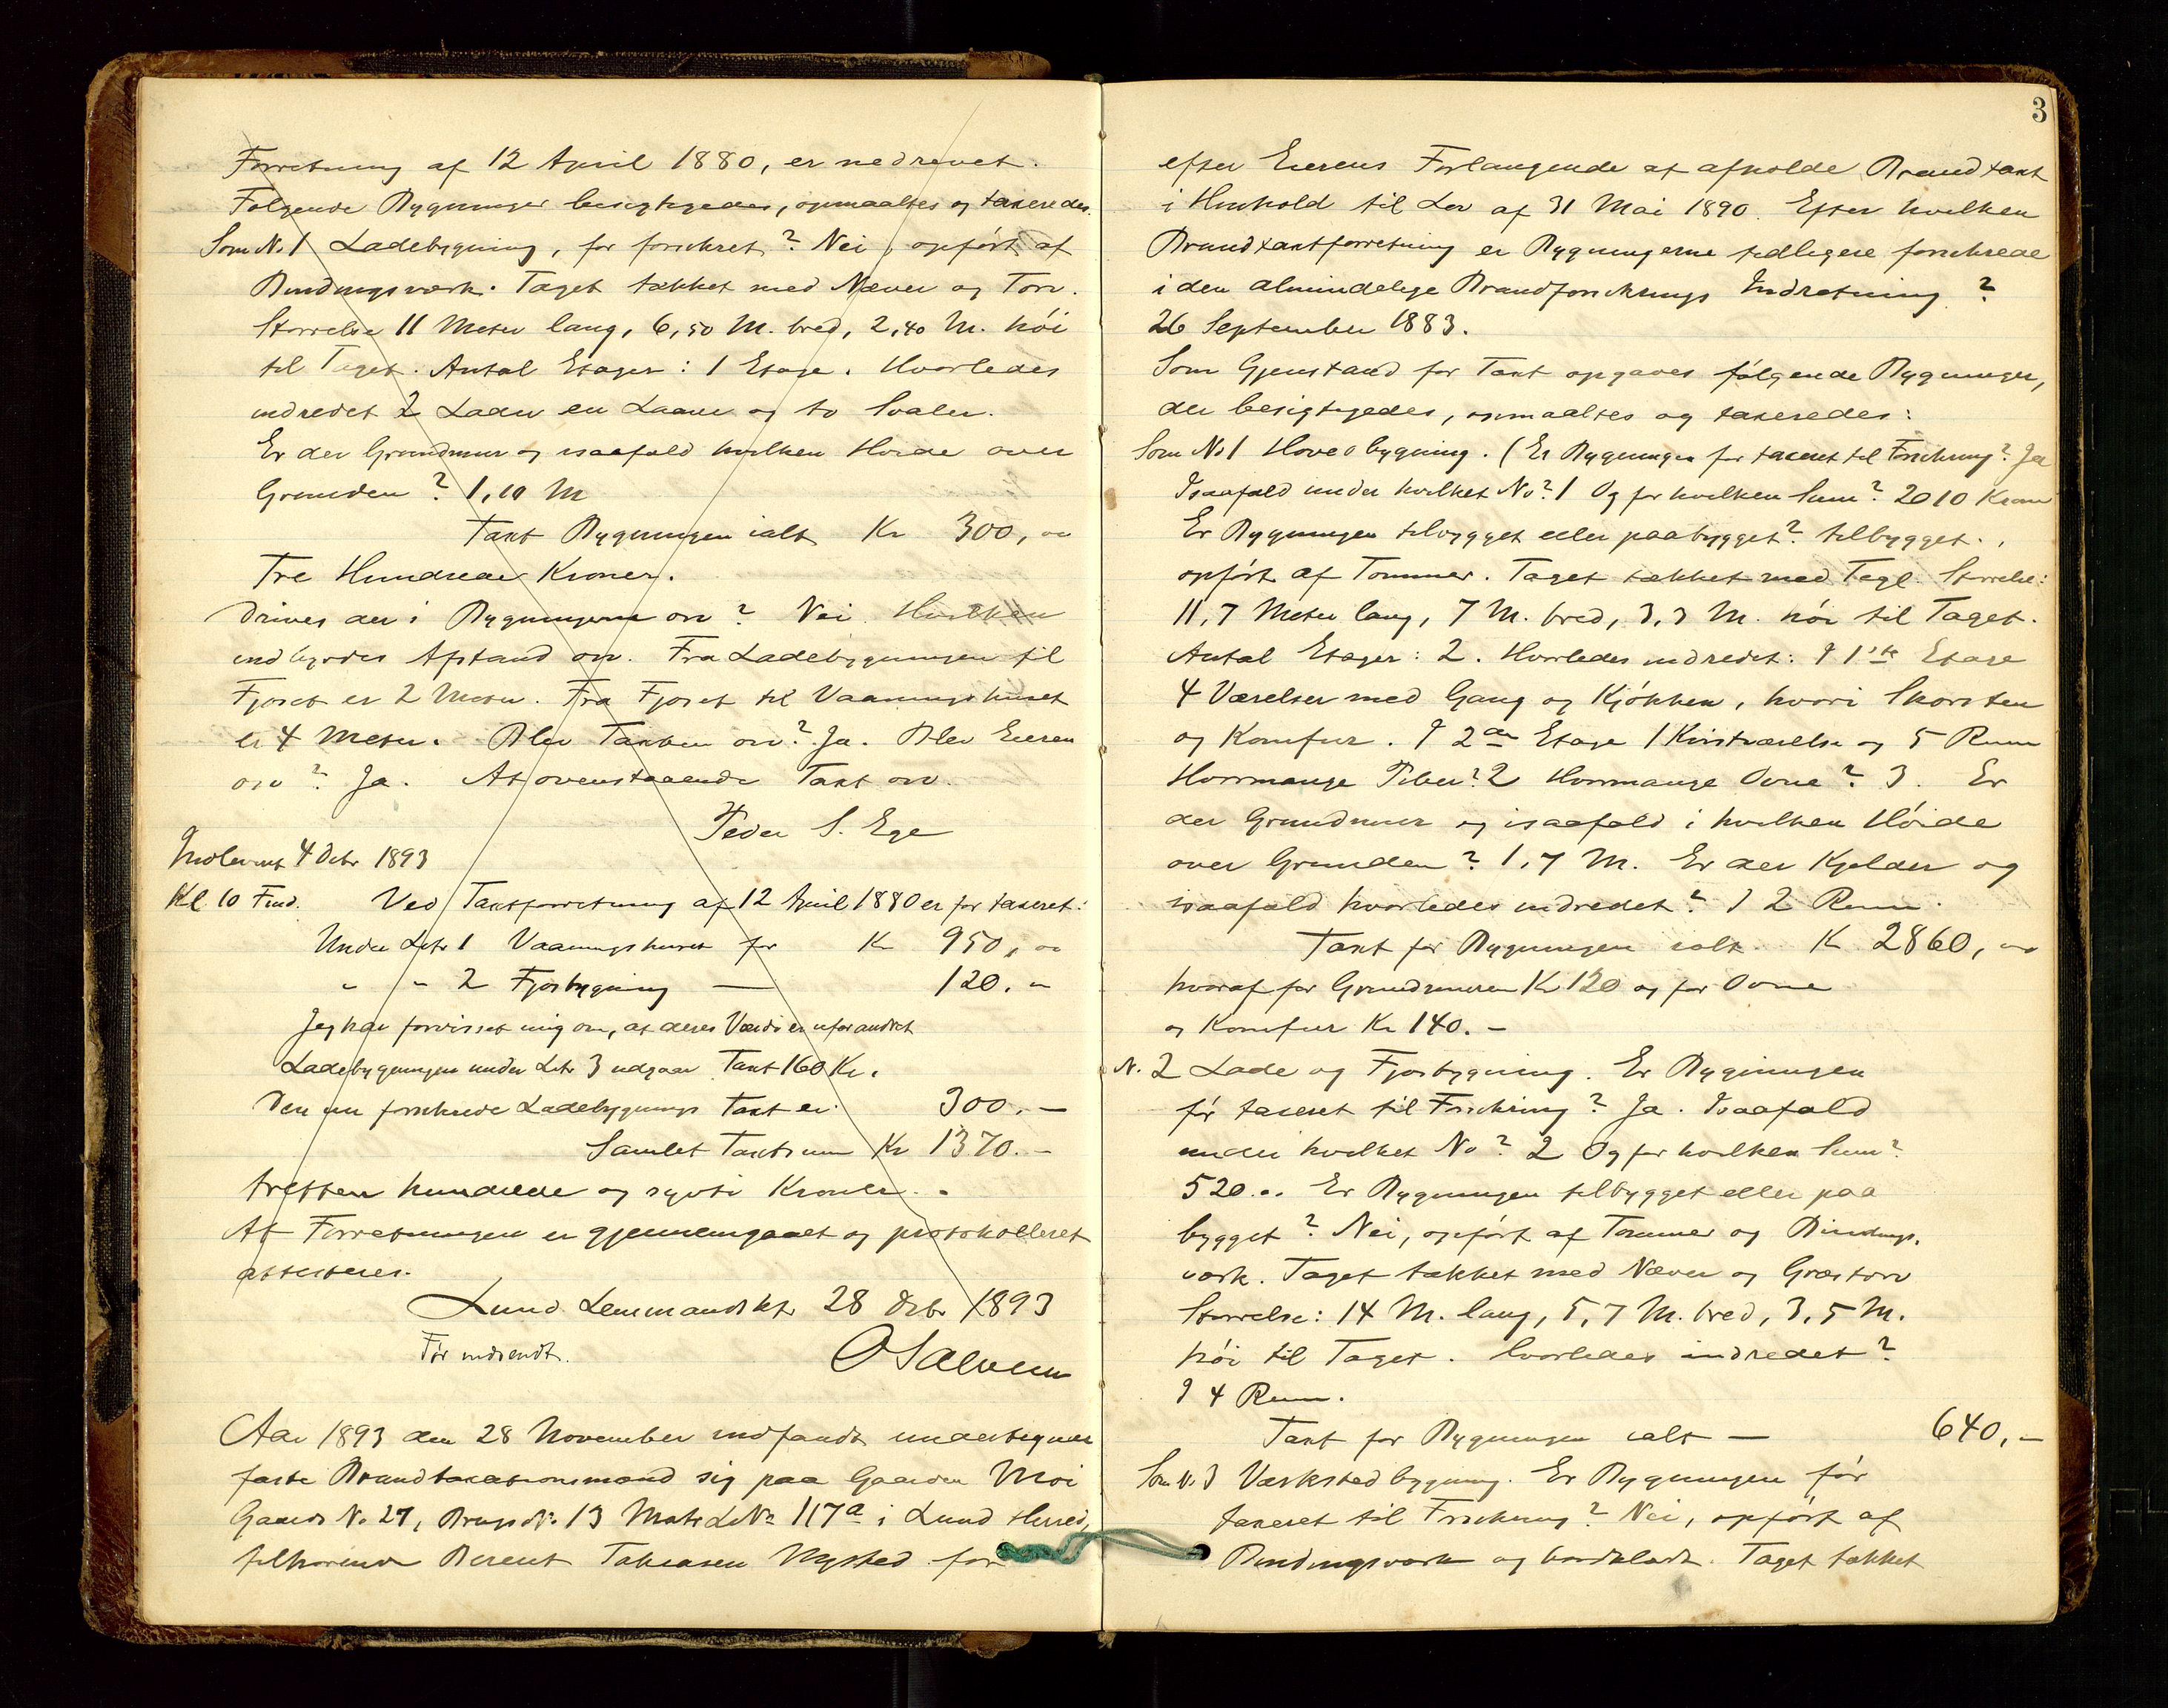 Forretning af 12 April 1880, er nedrevet.
Følgende Bygninger besigtigedes, opmaaltes og taxeredes.
Som No 1 Ladebygning, før forsikret? Nei, opført af
Bindingsværk. Taget tækket med Næver og Torv.
Størrelse 11 Meter lang, 6,50 M. bred, 2,40 M. høi
til Taget. Antal Etager: 1 Etage. Hvorledes
indredet 2 Lader en Laave og to Svaler.
Er der Grundmur og isaafald hvilken Høide over
Grunden? 1,10 M
Taxt Bygningen ialt Kr 300,00
Tre Hundrede Kroner.
Drives der i Bygningerne osv? Nei. Hvilken
indbyrdes Afstand osv. Fra Ladebygningen til
Fjøset er 2 Meter. Fra Fjøset til Vaaningshuset
er 4 Meter. Blev Taxten osv? Ja. Blev Eieren
osv? Ja. At ovenstaaende Taxt osv.
Peder S. Ege
Indleveret 4 Debr 1893
Kl. 10 Fmd. Ved Taxtforretning af 12 April 1880 er før taxeret:
Under Litr 1 Vaaningshuset for Kr 950,00
" " 2 Fjøsbygning — 120. "
Jeg har forvisset mig om, at deres Værdi er uforandret
Ladebygningen under Litr 3 udgaar Taxt 160 Kr.
Den nu forsikrede Ladebygnings Taxt er 300. —
Samlet Taxtsum Kr 1370. —
tretten hundrede og sytti Kroner.
At Forretningen er gjennemgaaet og protokolleret
attesteres.
Lund Lensmandskt. 28 Debr 1893
Før indsendt.
Aar 1893 den 28 November indfandt undertegnede
faste Brandtaxationsmænd sig paa Gaarden Moi
Gaards No 27, Brugs No 13 Matr L No 117a i Lund Herred,
tilhørende Berent Nysted for
3
efter Eierens Forlangende at afholde Brandtaxt
i Henhold til Lov af 31 Mai 1890. Efter hvilken
Brandtaxtforretning er Bygningerne tidligere forsikrede
i den almindelige Brandforsikrings Indretning?
26 September 1883.
Som Gjenstand for Taxt opgaves følgende Bygninger,
der besigtigedes, opmaaltes og taxeredes:
Som No 1 Hovedbygning. (Er Bygningen før taxeret til Forsikring? Ja
Isaafald under hvilket No? 1 Og for hvilken Sum? 2010 Kroner
Er Bygningen tilbygget eller paabygget? tilbygget.,
opført af Tømmer. Taget tækket med Tegl. Størrelse:
11,7 Meter lang, 7 M. bred, 3,3 M. høi til Taget.
Antal Etager: 2. Hvorledes indredet: I 1ste Etage
4 Værelser med Gang og Kjøkken, hvori Skorsten
og Komfur. I 2den Etage 1 Kvistværelse og 5 Rum
Hvormange Piber? 2 Hvormange Ovne? 3. Er
der Grundmur og isaafald i hvilken Høide
over Grunden? 1,7 M. Er der Kjelder og
isaafald hvorledes indredet? I 2 Rum.
Taxt for Bygningen ialt K 2860, "
hvoraf for Grundmuren Kr 120 og for Ovne
og Komfur Kr 140. —
N. 2 Lade og Fjøsbygning. Er Bygningen
før taxeret til Forsikring? Ja. Isaafald
under hvilket No? 2 Og for hvilken Sum?
520... Er Bygningen tilbygget eller paa
bygget? Nei, opført af Tømmer og Bindings.
værk. Taget tækket med Næver og Græstorv
Størrelse: 14 M. lang, 5,7 M. bred, 3,5 M.
høi til Taget. Hvorledes indredet?
I 4 Rum.
Taxt for Bygningen ialt — 640, —
Som N. 3 Værkstedbygning. Er Bygningen før
taxeret til Forsikring? Nei, opført af
Bindingsværk og bordklædt. Taget tækket